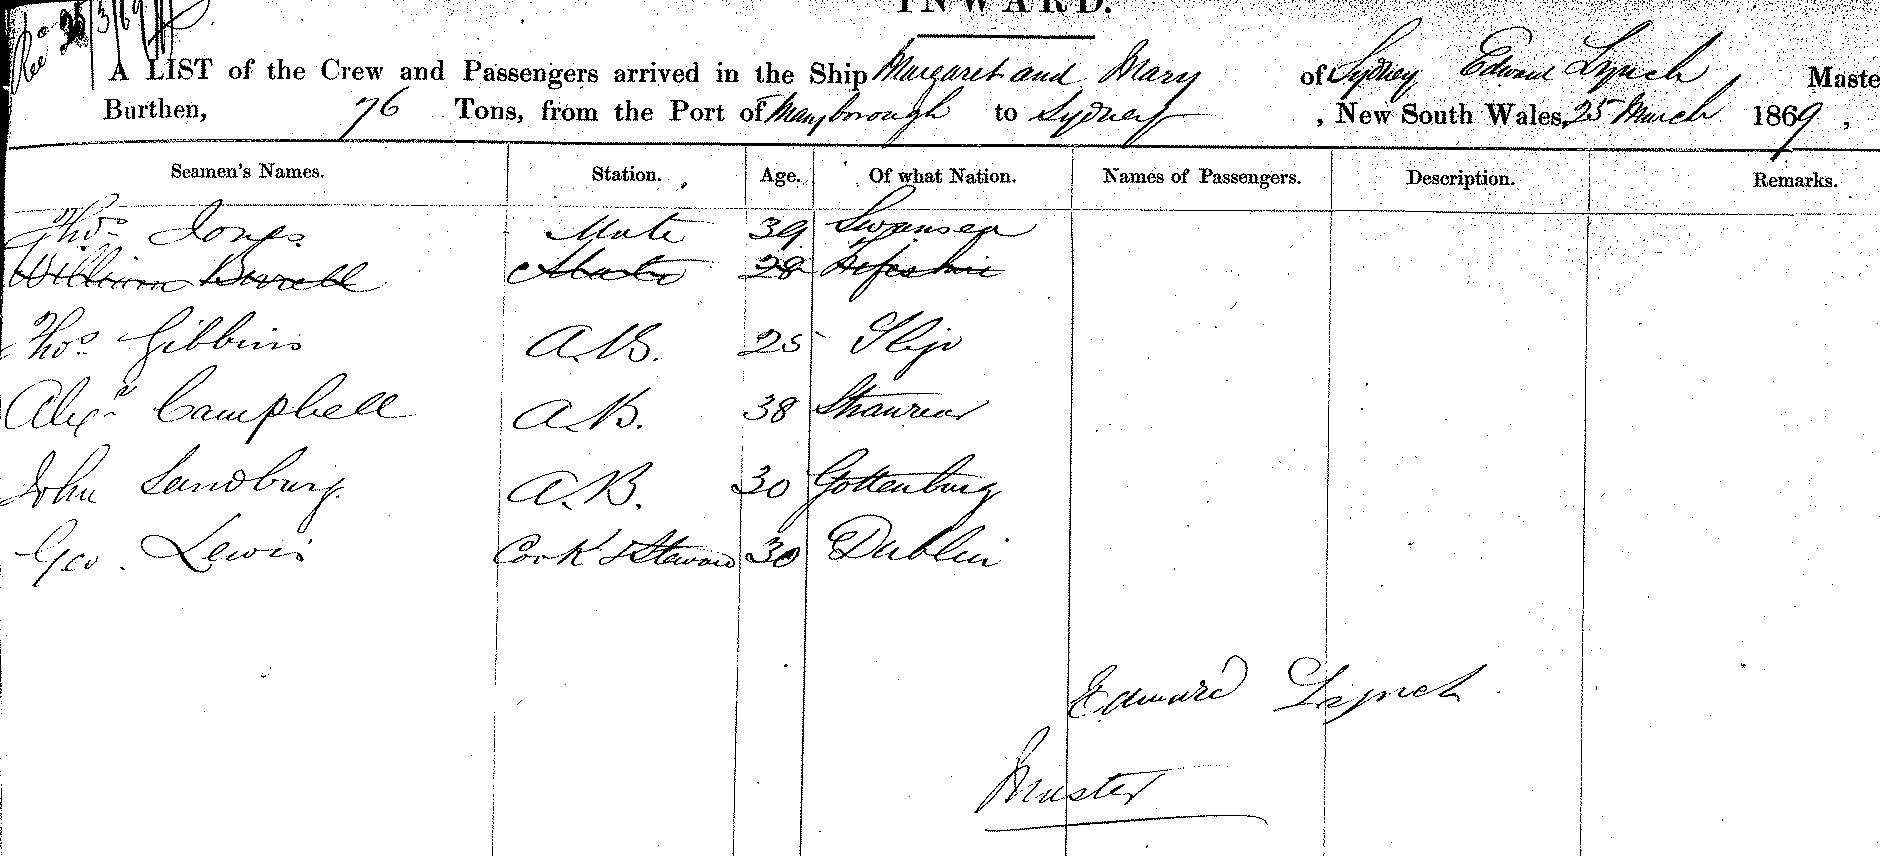 INWARD.
Rec 25/3/69
A LIST of the Crew and Passengers arrived in the Ship Margaret and Mary of Sydney Edward Lynch, Maste
Burthen, 76 Tons, from the Port of Maryborough to Sydney, New South Wales, 25 March 1869,
Seamen's Names. Station. Age. Of what Nation. Names of Passengers. Description. Remarks.
Thos Jones Mate 39 Swansea
William Birrell Mate 28 Fifeshire
Thos Gibbins A.B. 25 Sligo
Alexr Campbell A.B. 38 Stranrear
John Sandburg A.B. 30 Gottenburg
Geo. Lewis Cook & Steward 30 Dublin
Edward Lynch
Master